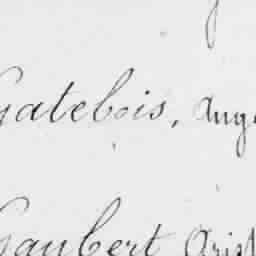 Gatebois, Aug
Gaubert Arist